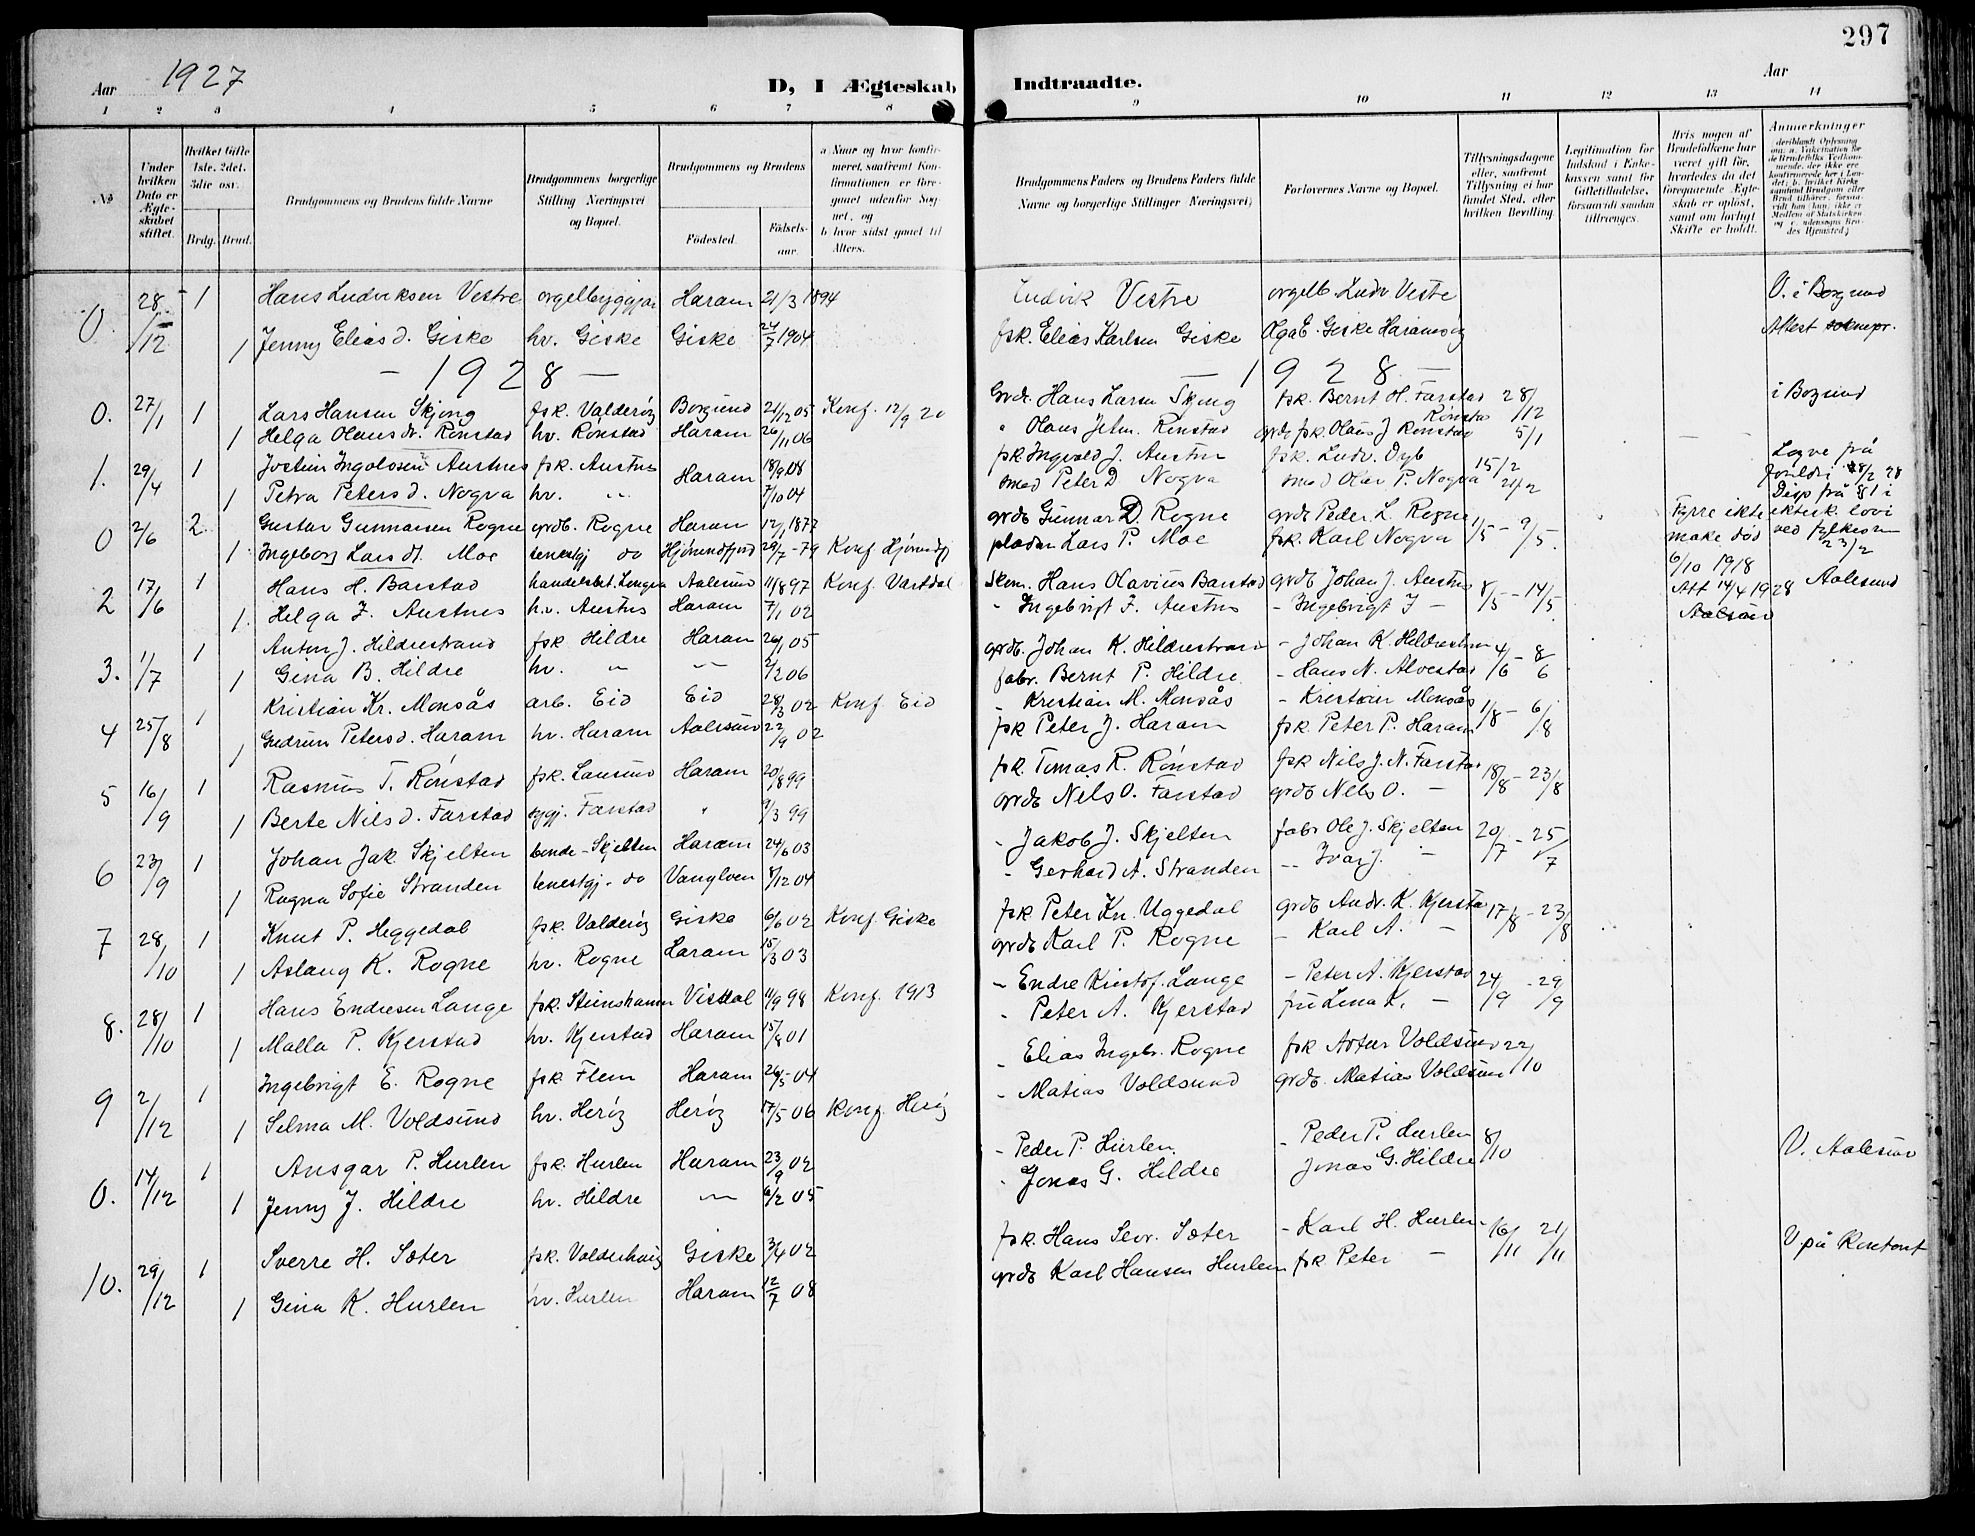 297
Aar 1927 D, I Ægteskab Indtraadte. Aar
1 2 3 4 5 6 7 8 9 10 11 12 13 14
No
Under hvilken Dato er Ægteskabet stiftet.
Hvilket Gifte 1ste, 2det, 3die osv.
Brdg. Brud.
Brudgommens og Brudens fulde Navne
Brudgommens borgerlige Stilling Næringsvei og Bopæl.
Brudgommens og Brudens
Fødested.
Fødselsaar.
a Naar og hvor konfirmeret, saafremt Konfirmationen er foregaaet udenfor Sognet, og
b hvor sidst gaaet til Alters.
Brudgommens Faders og Brudens Faders fulde Navne og borgerlige Stillinger Næringsvei)
Forlovernes Navne og Bopæl.
Tillysningsdagene eller, saafremt Tillysning ei har fundet Sted, efter hvilken Bevilling.
Legitimation for Indskud i Enkekassen samt for Giftetilladelse, forsaavidt saadan tiltrænges.
Hvis nogen af Brudefolkene har været gift før, hvorledes da det foregaaende Ægteskab er opløst, samt om lovligt Skifte er holdt.
Anmerkninger
0 28/12 1 Hans Ludviksen Vestre orgelbyggjar Haram 21/3 1894 Ludvik Vestre orgelb. Ludv Vestre V. i Borgund
1 Jenny Elias d. Giske hv. Giske Giske 24/7 1904 fsk. Elias Karlsen Giske Olga E. Giske Haramsøy Attest
- 1928 - - 1928 -
0. 27/1 1 Lars Hansen Skjong fsk. Valderøy Borgund 21/12 05 Konf. 12/9 20 Grdr. Hans Larsen Skjong fsk. Bernt H. Farstad 28/12 i Borgund
1 Helga Olaus dr. Rønstad hv. Rønstad Haram 26/11 06 " Olaus John. Rønstad grdb fsk. Olaus J Rønstad 5/1
1. 29/4 1 Jostein Ingolvsen Austnes fsk. Austnes Haram 18/9 08 fsk Ingvald J. Austnes fsk. Ludv. Dyb 15/2 Logve frå foreldri 28/2 28
1 Petra Peters d. Nogva hv. " 7/10 04 smed Peter D Nogva smed Olav P. Nogva 21/2 Disp frå §1 i ektesk. lovi ved fylkesm 23/2
0 2/6 2 Gustav Gunnarsen Rogne grdb. Rogne Haram 12/1 1872 grdb Gunnar D. Rogne grdb Peder L. Rogne 1/5 - 9/5. Fyrre ekte make død 6/10 1918
1 Ingeborg Lars dt. Moe tenestgj do Hjørundfjord 29/7 - 79 Konf Hjørundfj pladsm Lars P. Moe fsk. Karl Nogva
2 17/6 1 Hans H. Barstad handelsbet. Longva Aalesund 11/8 97 Konf. Vartdal Skom. Hans Olavius Barstad grdb Johan J. Austnes 8/5 - 14/5 Att 14/4 1928 Aalesund
1. Helga I. Austnes hv. Austnes Haram 7/1 02 - Ingebrigt I. Austnes - Ingebrigt I -
3. 1/7 1 Anton J. Hildrestrand fsk Hildre Haram 26/1 05 grdb. Johan K. Hildrestrand - Johan K. Hildrestran 4/6 - 8/6
1 Gina B. Hildre hv. " " 2/2 06 fabr. Bernt P. Hildre - Hans N. Alvestad
4 25/8 1 Kristian Kr. Monsås arb. Eid Eid 28/3 02 Konf Eid - Kristian M. Monsås - Kristian Monsås 1/8 - 6/8
1 Gudrun Peters d. Haram hv. Haram Aalesund 22/9 02 fsk Peter J. Haram fsk. Peter P. Haram
5 16/9 1 Rasmus T. Rønstad fsk. Longva Haram 20/8 99 fsk. Tomas R. Rønstad fsk Nils J. N. Farstad 18/8 - 23/8
1 Berte Nils d. Farstad sygj. Farstad " 9/3 99 grdb Nils O. Farstad grdb Nils O. -
6 23/9 1 Johan Jak Skjelten bonde - Skjelten Haram 24/6 03 - Jakob J. Skjelten fabr Ole J. Skjelten 20/7 - 25/7
1 Ragna Sofie Stranden tenestgj - do Vanylven 8/12 04 - Gerhard A. Stranden - Ivar J. -
7 28/10 1 Knut P. Heggedal fsk. Valderøy Giske 6/6 02 Konf. Giske fsk Peter Kn. Uggedal grdb Andr. K. Kjersta 17/8 - 23/8
1 Aslaug K. Rogne hv. Rogne Haram 15/3 03 grdb Karl P. Rogne - Karl A. -
8. 28/10 1 Hans Endresen Lange fsk. Steinshamn Visdal 11/9 98 Konf. 1913 - Endre Kristof. Lange - Peter A. Kjerstad 24/9 - 29/9
1 Malla P. Kjerstad hv. Kjerstad Haram 15/8 01 - Peter A. Kjerstad frü Lena K. -
9 2/12 1 Ingebrigt E. Rogne fsk Flem Haram 26/5 04 - Elias Ingebr. Rogne fsk Artur Voldsund 22/10
1 Selma M. Voldsund hv. Herøy Herøy 17/5 06 Konf. Herøy - Matias Voldsund grdb. Matias Voldsun
0. 14/12 1 Ansgar P. Hurlen fsk. Hurlen Haram 23/9 02 - Peder P. Hurlen. - Peder P. Hurlen 8/10 V. Aalesund
1 Jenny J. Hildre hv. Hildre " 6/2 05 - Jonas G. Hildre Jonas G. Hildre
10. 29/12 1 Sverre H. Sæter fsk. Valderhaug Giske 3/4 02 fsk. Hans Sevr. Sæter - Karl H. Hurlen 16/11 21/11 V på
1 Gina K. Hurlen hv. Hurlen Haram 12/7 08 grdb Karl Hansen Hurlen fsk Peter -